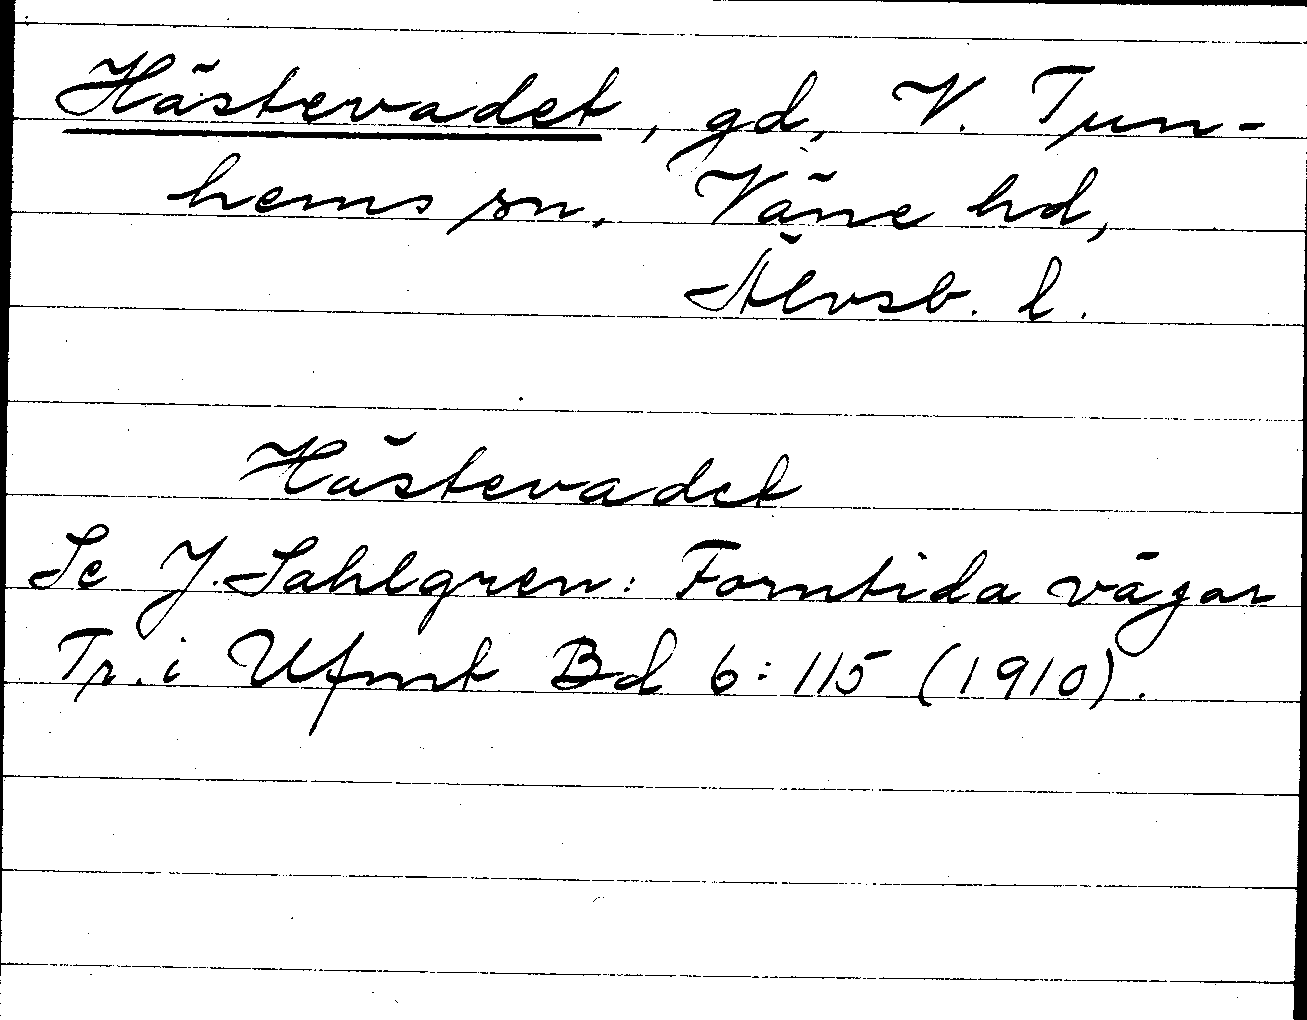 Hästevadet, gd, V. Tun-
hems sn. Väne hd,
Älvsb. l.
Hästevadet
Se J. Sahlgren: Forntida vägar
Tr. i Ufmt Bd 6:115 (1910).